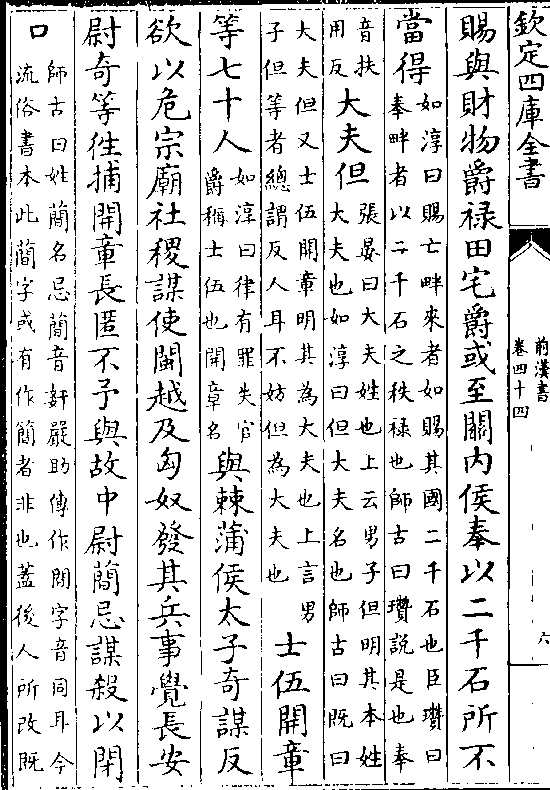 欽定四庫全書
前漢書
卷四十四
六
賜與財物爵祿田宅爵或至關內侯奉以二千石所不
當得
如淳曰賜亡畔來者如賜其國二千石也臣瓚曰
奉畔者以二千石之秩祿也師古曰瓚說是也奉
音扶
用反
大夫但
張晏曰大夫姓也上云男子但明其本姓
大夫也如淳曰但大夫名也師古曰既曰
大夫但又士伍開章明其為大夫也上言男
子但等者總謂反人耳不妨但為大夫也
士伍開章
等七十人
如淳曰律有罪失官
爵稱士伍也開章名
與棘蒲侯太子奇謀反
欲以危宗廟社稷謀使閩越及匈奴發其兵事覺長安
尉奇等徃捕開章長匿不予與故中尉蕳忌謀殺以閉
口
師古曰姓蕳名忌蕳音姧嚴助傳作閒字音同耳今
流俗書本此蕳字或有作簡者非也蓋後人所改既